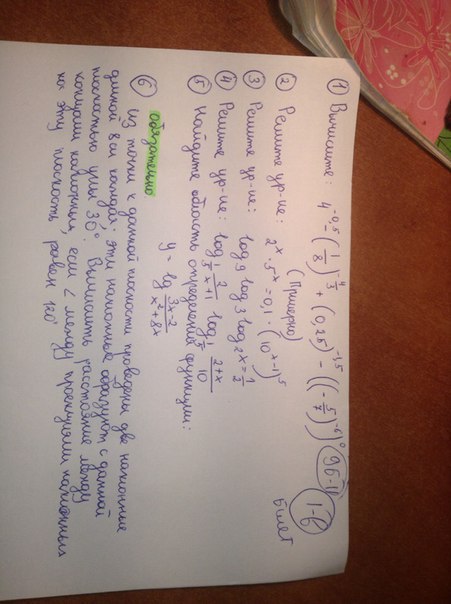 ① Вычислите: 4^{-0,5} - (1/8)^{-4/3} + (0,25)^{-1,5} - ((-5/7)^{-6})^0
1-В
Билет
② Решите ур-ие: 2^x · 5^x = 0,1 · (10^{x-1})^5
(Примерно)
③ Решите ур-ие: log_9 log_3 log_2 x = 1/2
④ Решите ур-ие: log_{1/5} 2/(x+1) log_{1/5} (2+x)/10
⑤ Найдите область определения функции:
y = lg (3x-2)/(x²+8x)
обязательно
⑥ Из точки к данной плоскости проведены две наклонные
длиной 8см каждая. Эти наклонные образуют с данной
плоскостью углы 30°. Вычислить расстояние между
концами наклонных, если < между проекциями наклонных
на эту плоскость равен 120°